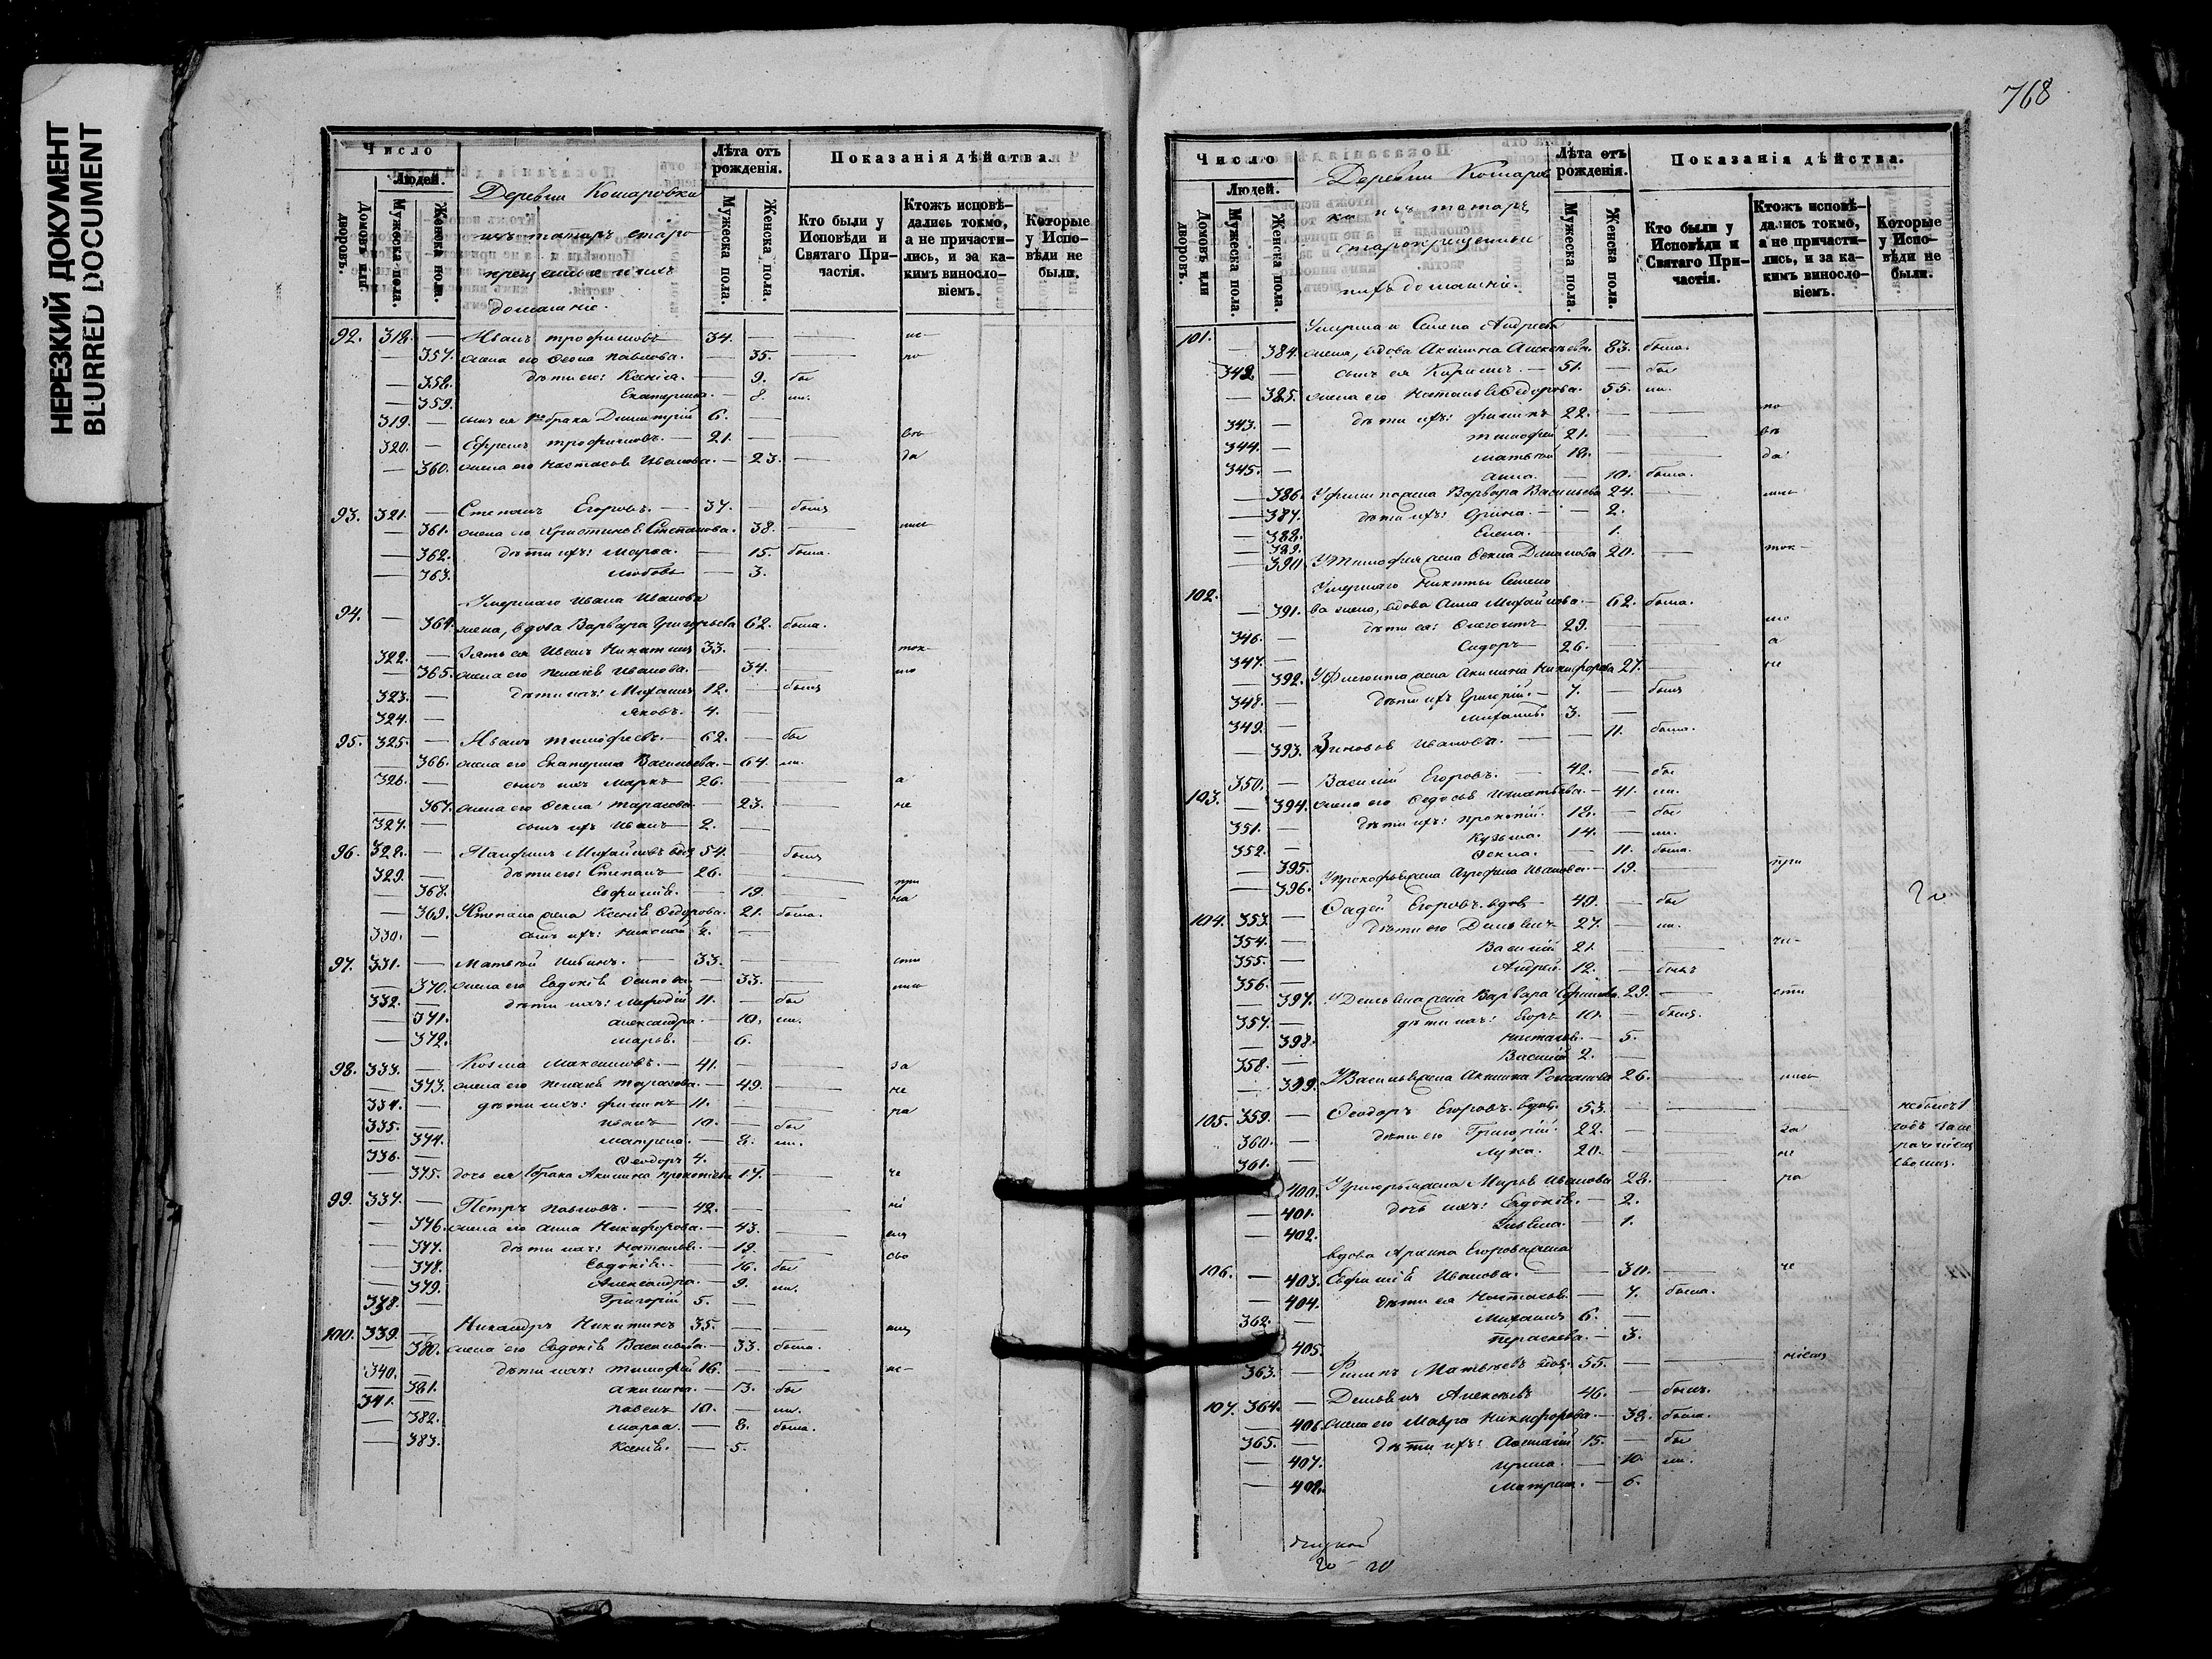 НЕРЕЗКИЙ ДОКУМЕНТ
BLURRED DOCUMENT
Число
Людей.
Домовъ или дворовъ.
Мужеска пола.
Женска пола.
Деревни Комаровки
изъ татаръ старо-
крещеные и ихъ
домашніе.
Лѣта отъ рожденія.
Мужеска пола.
Женска пола.
Показанія дѣйства.
Кто были у Исповѣди и Святаго При-частія.
Ктожъ исповѣ-дались токмо, а не причасти-лись, и за ка-кимъ винослo-віемъ.
Которые у Испо-вѣди не были.
92. 318. — Иванъ Трофимовъ 34. —
— 357. жена его Павлова. — 35.
— 358. дѣти его: Ксенія. — 9. бы
— 359. Екатерина. — 8. ли.
319. — Димитрій 6. —
320. — Ефремъ Трофимовъ. — 21. —
— 360. жена его Настасья Иванова. — 23.
93. 321. — Степанъ Егоровъ. — 37. — былъ
— 361. жена его Христинья Степанова. — 38.
— 362. дѣти ихъ: Марѳа. — 15. была.
— 363. Любовь — 3.
94. Умершаго Ивана Иванова
— 364. жена, вдова Варвара Григорьева 62. была.
322. — Зять ея Иванъ Никитинъ 33. —
— 365. жена его Пелагея Иванова. — 34.
323. — дѣти ихъ: Михаилъ 12. — былъ
324. — Яковъ. 4. —
95. 325. — Иванъ Тимофеевъ. — 62. — бы
— 366. жена его Екатерина Васильева. — 64. ли.
326. — сынъ ихъ Марко 26. — а
— 367. жена его Ѳекла Тарасова — 23. не
327. — сынъ ихъ Иванъ 2. —
96. 328. — Михайловъ вдов 54. — былъ
329. — дѣти его: Степанъ 26. при
— 368. Евфимія. — 19. ча
— 369. У Степана жена Ксенія Ѳедорова. — 21. была.
330. — сынъ ихъ: Николай 2. —
97. 331. — Матвей Ильинъ. — 33. —
— 370. жена его Евдокія Осипова. — 33.
332. — дѣти ихъ: Меѳодій 11. — бы
— 371. Александра. — 10. ли.
— 372. Марья. — 6.
98. 333. — Козма Максимовъ. — 41. за
— 373. жена его Пелагея Тарасова. — 49. не
334. — дѣти ихъ: Филипъ 11. ра
335. — Иванъ 10. — бы
— 374. Матрена. — 8. ли.
336. — Ѳеодоръ 4. —
— 375. дочь ея 1 брака Акилина Прокопьева 17. че
99. 337. — Петръ Павловъ. — 42. — ні
— 376. жена его Анна Никифорова. — 43. емъ
— 377. дѣти ихъ: Наталья. — 19. сво
— 378. Евдокія. — 16. бы
— 379. Александра. — 9. ли.
338. — Григорій 5. —
100. 339. — Никандръ Никитинъ 35. —
— 380. жена его Евдокія Васильева. — 33. была.
340. — дѣти ихъ: Тимофей 16. — не-
— 381. Акилина. — 13. бы
341. — Павелъ 10. — ли.
— 382. Марѳа. — 8. была.
— 383. Ксенія. — 5.
768
Число
Людей.
Домовъ или дворовъ.
Мужеска пола.
Женска пола.
Деревни Комаров
ки изъ татаръ
старокрещеные
и ихъ домашніе.
Лѣта отъ рожденія.
Мужеска пола.
Женска пола.
Показанія дѣйства.
Кто были у Исповѣди и Святаго При-частія.
Ктожъ исповѣ-дались токмо, а не причасти-лись, и за ка-кимъ винослo-віемъ.
Которые у Испо-вѣди не были.
101. Умершаго Семена Андреева
— 384. жена, вдова Акилина Алексѣева. 83. была.
342. — сынъ ея Кирилъ. — 51. — бы
— 385. жена его Наталья Ѳедорова. 55. ли.
343. — дѣти ихъ: Филипъ 22. — по
344. — Тимофей 21. — въ
345. — Матвей 18. да
— 386. Анна. — 10. была.
— 387. У Филипа жена Варвара Васильева 24.
— 388. дѣти ихъ: Ирина. — 2.
— 389. Елена. — 1.
— 390. У Тимофея жена Ѳекла Данилова 20. ток
102. Умершаго Никиты Семено
— 391. ва жена, вдова Анна Михайлова. — 62. была.
346. — дѣти ея: 29. — мо
347. — Сидоръ 26. — а
— 392. жена Акилина Никифорова 27. не
348. — дѣти ихъ Григорій. — 7. — былъ
349. — Михаилъ. 3. —
— 393. Зиновья Иванова. — 11. была.
103. 350. — Василій Егоровъ. — 42. — бы
— 394. жена его Ѳедосья Игнатьева. — 41. ли.
351. — дѣти ихъ: Прокопій. 18. — бы
352. — Кузьма. 14. — ли.
— 395. Ѳекла. — 11. была.
— 396. У Прокофья жена Аграфена Иванова. — 19. при
104. 353. — Ѳадей Егоровъ вдов — 49. — бы
354. — дѣти его 27. — ли.
355. — Василій 21. ча-
356. — Андрей. 12. — былъ
— 397. жена Варвара Ефимова 29. — сти
357. — дѣти ихъ: Егоръ 10. — былъ.
— 398. Наталья. — 5.
358. — Василій 2. —
— 399. У Василья жена Акилина Романова 26.
105. 359. — Ѳеодоръ Егоровъ. вдов. 53. — небылъ 1
360. — дѣти его Григорій. 22. — за годъ за не
361. — Лука. 20. — не раченіемъ
— 400. У Григорья жена Марья Иванова 22. ра своимъ.
— 401. дочь ихъ: Евдокія. — 2.
— 402. — 1.
106. вдова Архипа Егорова жена
— 403. Евфимія Иванова. — 30. че
— 404. дѣти ея Настасья. — 7. была.
362. — Михаилъ 6. —
— 405. Параскева. — 3.
363. — Филипъ Матвѣевъ вдов. 55. — ніемъ
107. 364. — Алексѣевъ 46. — былъ.
— 406. жена его Мавра Никифорова. — 38. была.
365. — дѣти ихъ: 15. — бы
— 407. Ирина. — 10. ли.
— 408. Матрена. — 6.
20 20